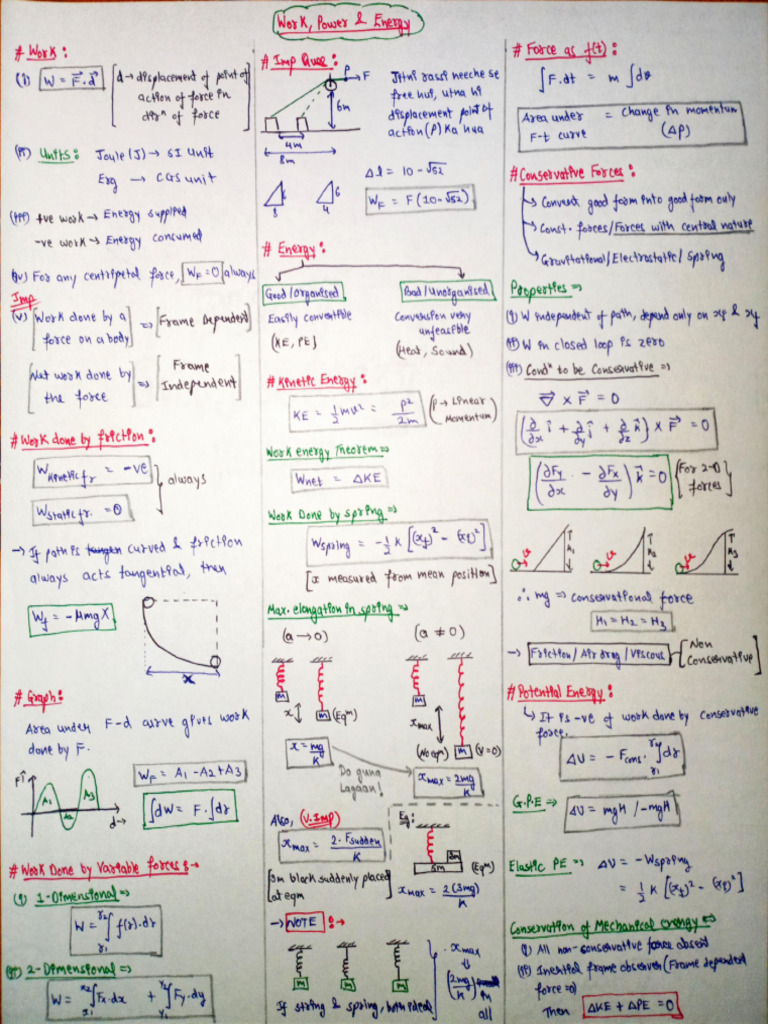 Work, Power & Energy
# Work:
(i) W = F⃗.d⃗ [d → displacement of point of
action of force in
dirⁿ of force]
(ii) Units: Joule (J) → SI Unit
Erg → CGS unit
(iii) +ve work → Energy supplied
-ve work → Energy consumed
(iv) For any centripetal force, W_F = 0 always
Imp
(v) [Work done by a
force on a body] => [Frame Dependent]
[Net work done by
the force] => [Frame
Independent]
# Work done by friction:
W_Kinetic fr = -ve
W_static fr. = 0
always
→ If path is curved & friction
always acts tangential, then
W_f = -μmgX
x
# Graph:
Area under F-d curve gives work
done by F.
F↑
A1
A2
A3
d→
W_F = A1 - A2 + A3
∫dW = F.∫dr
# Work Done by Variable forces:→
(i) 1-Dimensional =>
W = ∫_{r1}^{r2} f(r).dr
(ii) 2-Dimensional =>
W = ∫_{x1}^{x2} Fx.dx + ∫_{y1}^{y2} Fy.dy
# Imp Ques:
P
→ F
6m
4m
8m
Jitni rassi neeche se
free hui, utna hi
displacement point of
action (P) ka hua
6
8
6
4
Δl = 10 - √52
W_F = F(10 - √52)
# Energy:
Good/Organised
Bad/Unorganised
Easily convertible
Conversion very
unfeasible
(KE, PE)
(Heat, Sound)
# Kinetic Energy:
KE = 1/2 mv² = p²/2m (p → Linear
Momentum)
Work energy Theorem =>
Wnet = ΔKE
Work Done by spring =>
Wspring = -1/2 K [(xf)² - (xi)²]
[x measured from mean position]
Max. elongation in spring =>
(a → 0)
(a ≠ 0)
m
x
m
(Eqᵐ)
m
xmax
(No eqm)
m
(v=0)
x = mg/K
Do guna
Lagaan!
xmax = 2mg/K
Also, (V.Imp)
xmax = 2.Fsudden/K
[3m block suddenly placed
at eqm
Eg:
3m
5m
(Eqᵐ)
xmax = 2(3mg)/K
→ NOTE :→
m
m
m
xmax
(2mg/K) in
all
If string & spring, both ideal
# Force as f(t):
∫F.dt = m ∫dv
Area under
F-t curve = Change in momentum
(Δp)
# Conservative Forces:
→ Convert good form into good form only
→ Const. forces/Forces with central nature
→ Gravitational/Electrostatic/Spring
Properties =>
(i) W independent of path, depend only on xf & xi
(ii) W in closed loop is zero
(iii) Condⁿ to be Conservative =>
∇ × F⃗ = 0
(∂/∂x î + ∂/∂y ĵ + ∂/∂z k̂) × F⃗ = 0
(∂Fy/∂x - ∂Fx/∂y) k̂ = 0 {For 2-D
forces}
v
H1
v
H2
v
H3
∴ mg => conservational force
H1 = H2 = H3
→ Friction/Air drag/Viscous - [Non
Conservative]
# Potential Energy:
↳ It is -ve of work done by conservative
force.
ΔU = -Fcons. ∫_{r1}^{r2} dr
G.P.E => ΔU = mgH / -mgH
Elastic PE => ΔU = -Wspring
= 1/2 K [(xf)² - (xi)²]
Conservation of Mechanical energy =>
(i) All non-conservative force absent
(ii) Inertial frame observer (Frame dependent
force=0)
Then ΔKE + ΔPE = 0